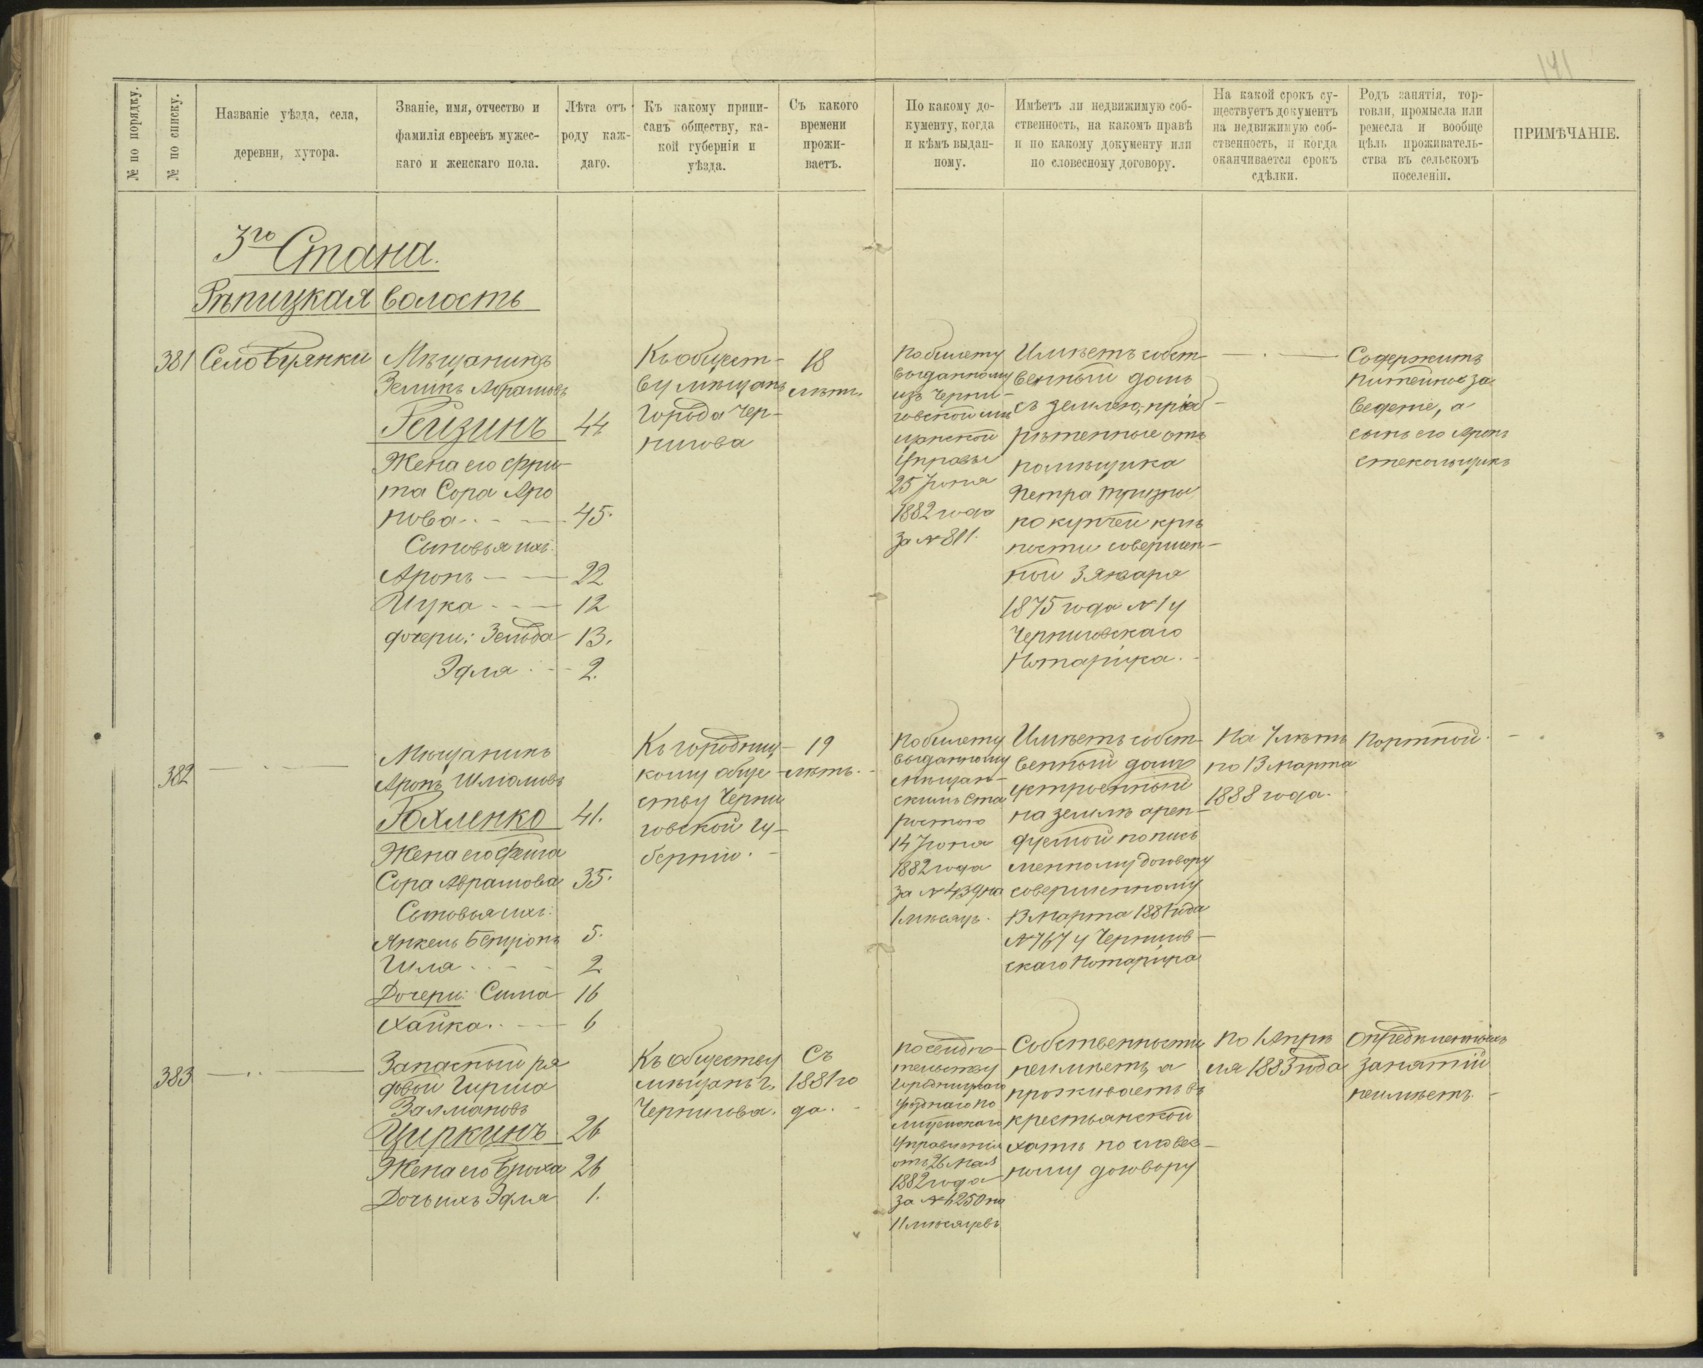 141
№ по порядку.
№ по списку.
Названіе уѣзда, села,
деревни, хутора.
Званіе, имя, отчество и
фамилія евреевъ мужес-
каго и женскаго пола.
Лѣта отъ
роду каж-
даго.
Къ какому припи-
санъ обществу, ка-
кой губерніи и
уѣзда.
Съ какого
времени
прожи-
ваетъ.
По какому до-
кументу, когда
и кѣмъ выдан-
ному.
Имѣетъ ли недвижимую соб-
ственность, на какомъ правѣ
и по какому документу или
по словесному договору.
На какой срокъ су-
ществуетъ документъ
на недвижимую соб-
ственность, и когда
оканчивается срокъ
сдѣлки.
Родъ занятія, тор-
говли, промысла или
ремесла и вообще
цѣль проживатель-
ства въ сельскомъ
поселеніи.
ПРИМѢЧАНІЕ.
3го Стана.
Рѣпицкая волость
381
Село Буянки
Мѣщанинъ
Зеликъ Абрамовъ
Рейзинъ 44
Жена его Фри-
та Сора Аро
нова 45.
Сыновья ихъ:
Аронъ 22
Ицка 12
дочери: Зельда 13.
Эдля 2.
Къ общест-
ву мѣщанъ
города Чер-
нигова
18
лѣтъ
По билету
выданному
изъ Черни-
говской мѣ
щанской
Управы
25 Іюня
1882 года
за № 811.
Имѣетъ собст-
венный домъ
съ землею, пріоб-
рѣтенные отъ
помѣщика
Петра
по купчей крѣ
пости совершен-
ной 3 января
1875 года № 1 у
Черниговскаго
Нотаріуса.
Содержитъ
питейное за
ведете, а
сынъ его Аронъ
стекольщикъ
382
Мѣщанинъ
Аронъ Шліомовъ
Рохленко 41.
Жена его Фейга
Сора Абрамова 35.
Сыновья ихъ:
Янкель Бенціонъ 5.
Шля 2
Дочери: Сима 16
Хайка. 6
Къ городниц-
кому обще-
ству Черни
говской гу-
берніи.
19
лѣтъ.
По билету
выданному
мѣщан-
скимъ Ста
ростою
14 Іюня
1882 года
за № 439 на
1 мѣсяцъ.
Имѣетъ собст-
венный домъ
устроенный
на землѣ арен-
дуемой по пись
менному договору
совершенному
13 Марта 1881 года
№ 767 у Чернигов-
скаго Нотаріуса
На 7 лѣтъ
по 13 Марта
1888 года.
Портной.
383
Запасный ря
довой Гирша
Залмановъ
Циркинъ 26
Жена его Броха 26
Дочь ихъ Эдля 1.
Къ обществу
мѣщанъ г.
Чернигова.
Съ
1881 го
да.
По свидѣ-
тельству
Городницкаго
уѣзднаго по
лицейскаго
Управленія
отъ 26 Мая
1882 года
за № 6250 на
11 мѣсяцевъ
Собственности
неимѣетъ, а
проживаетъ въ
крестьянской
хатѣ по словес-
ному договору
По 1 Апрѣ
ля 1883 года
Опредѣленныхъ
занятій
неимѣетъ.